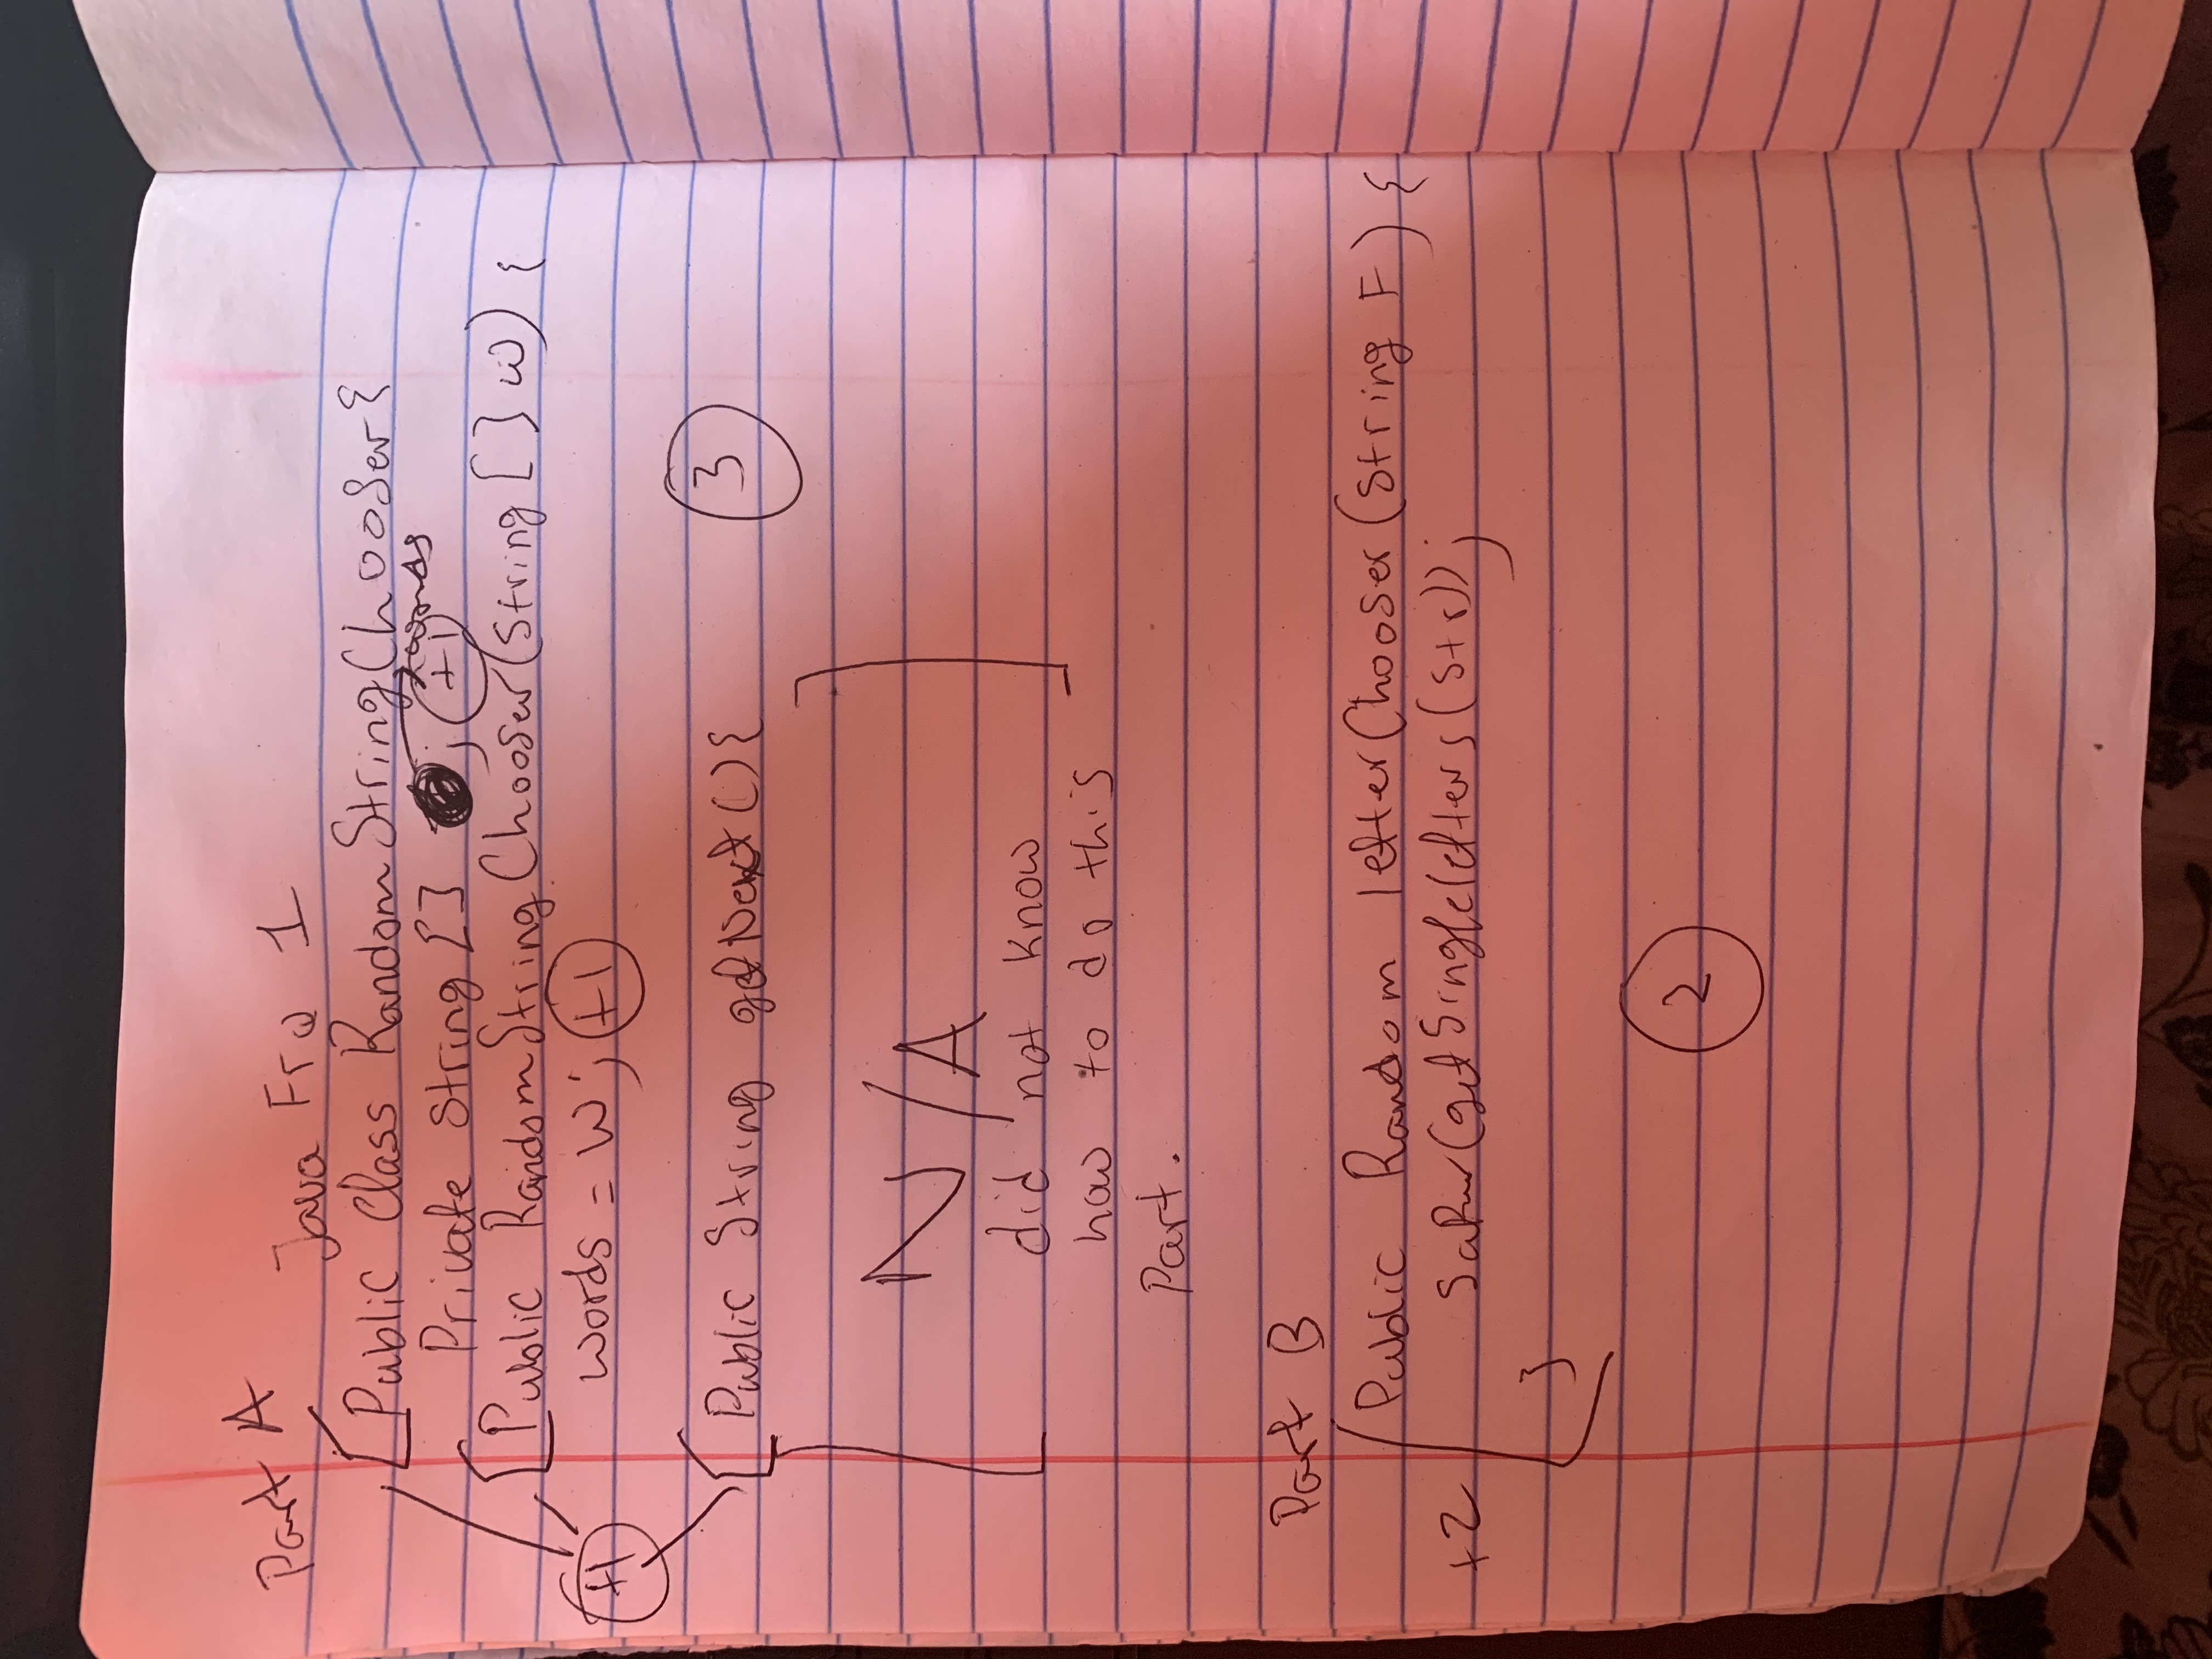 Part A
Java Frq 1
Public Class RandomStringChooser{
Private String [] ; words
+1
Public RandomStringChooser(String [] w) {
words = w; +1
+1
Public String getNext(){
3
N/A
did not know
how to do this
Part.
Part B
Public Random letterChooser(String F) {
+2
(getSingleletters(str));
}
2